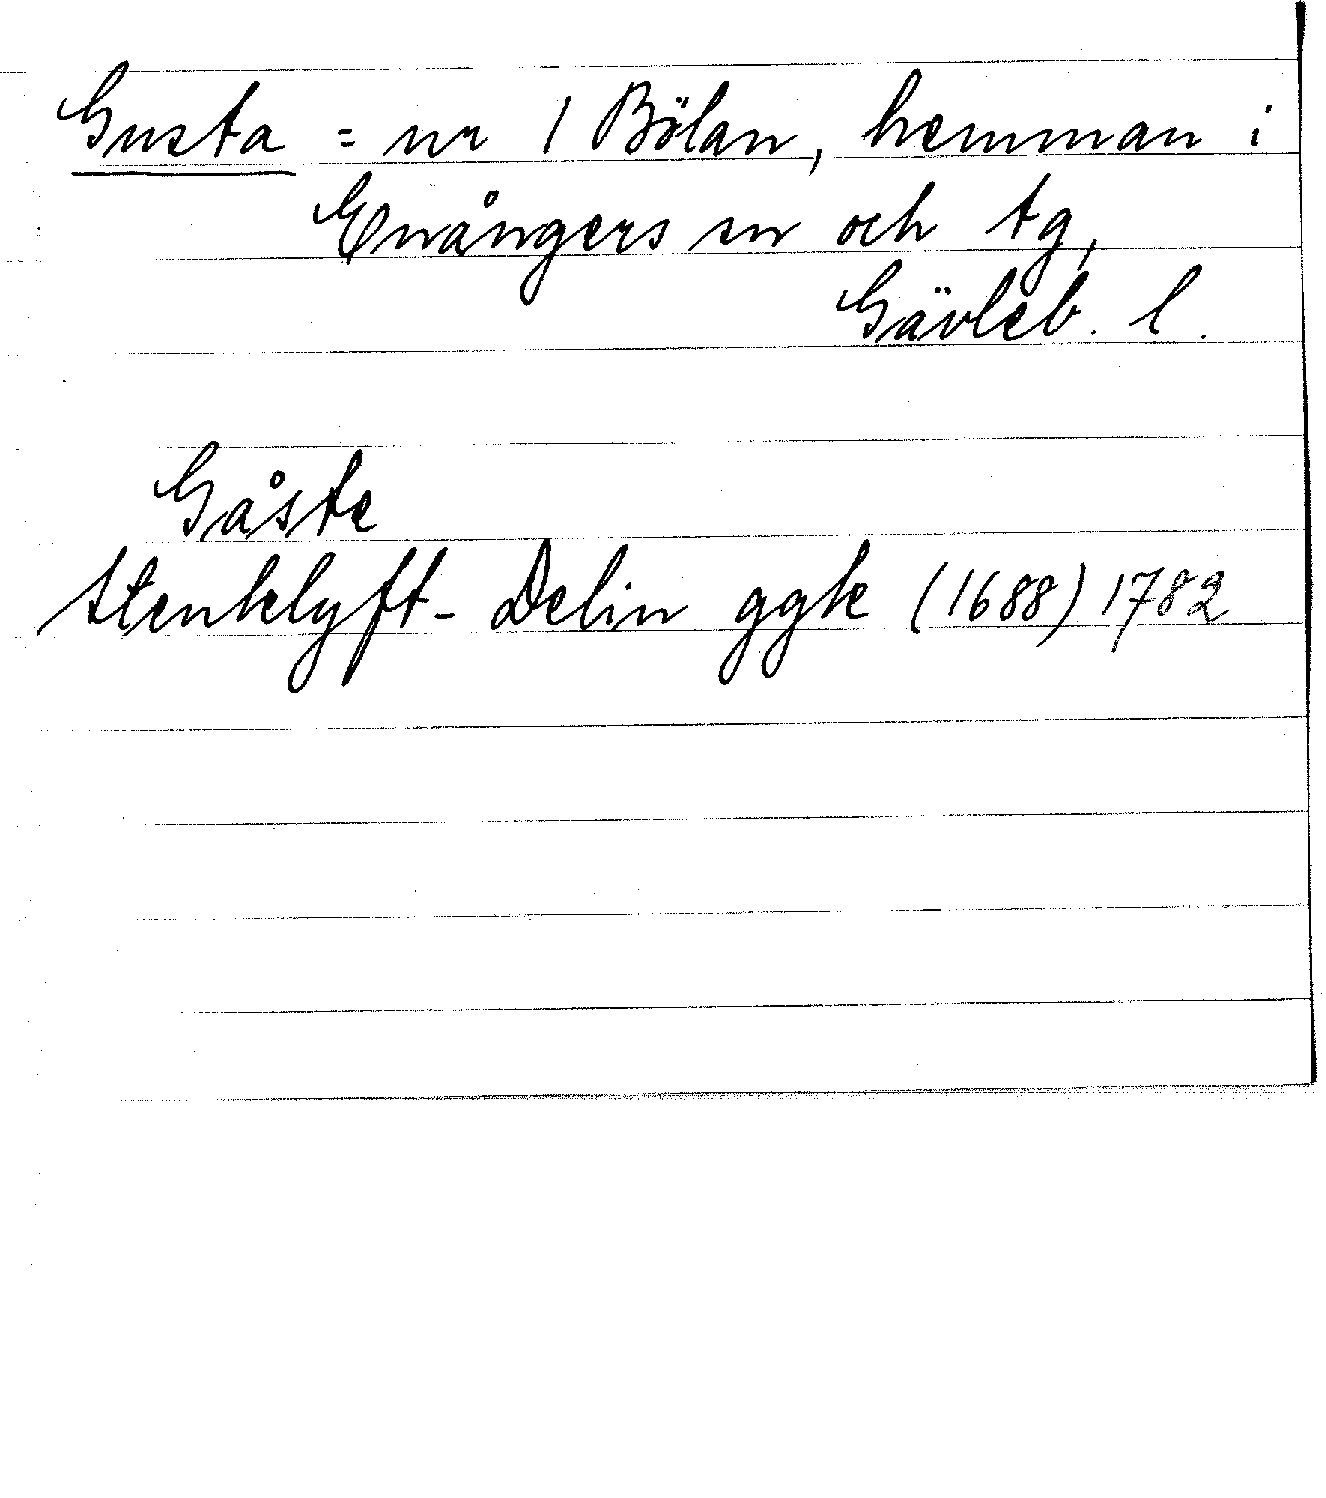 Gusta = nr 1 Bölan, hemman i
Enångers sn och tg,
Gävleb. l.
Gåste
Stenklyft - Delin ggk (1688) 1782